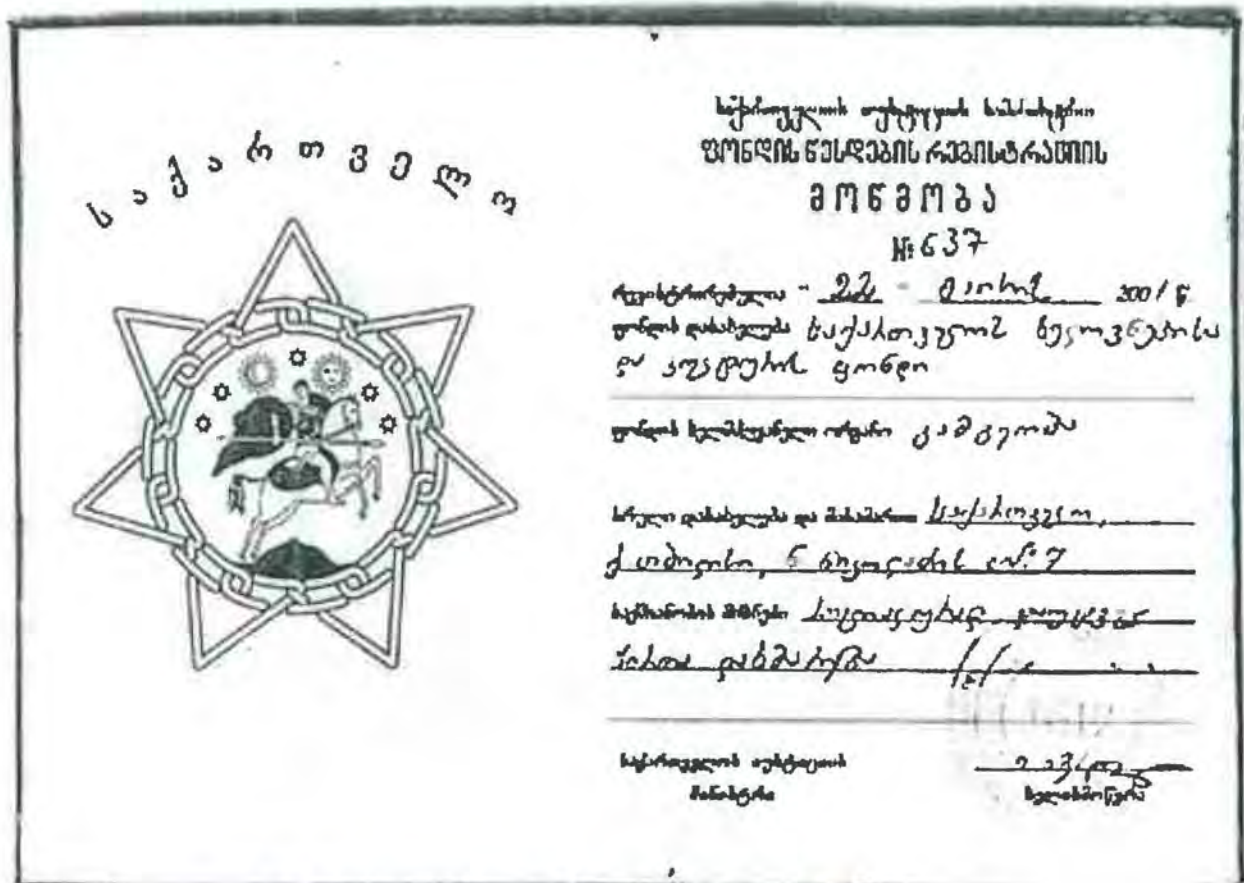 საქართველო
საქართველოს იუსტიციის სამინისტრო
ფონდის წესდების რეგისტრაციის
მოწმობა
№ 637
რეგისტრირებულია " 22 " მაისი 2001 წ
ფონდის დასახელება საქართველოს ხელოვნებისა
და კულტურის ფონდი
ფონდის ხელმძღვანელი ორგანო გამგეობა
სრული დასახელება და მისამართი საქართველო,
ქ თბილისი, ნ ნიკოლაძის №7
საქმიანობის მიზნები
დახმარება
საქართველოს იუსტიციის
მინისტრი
ხელისმოწერა